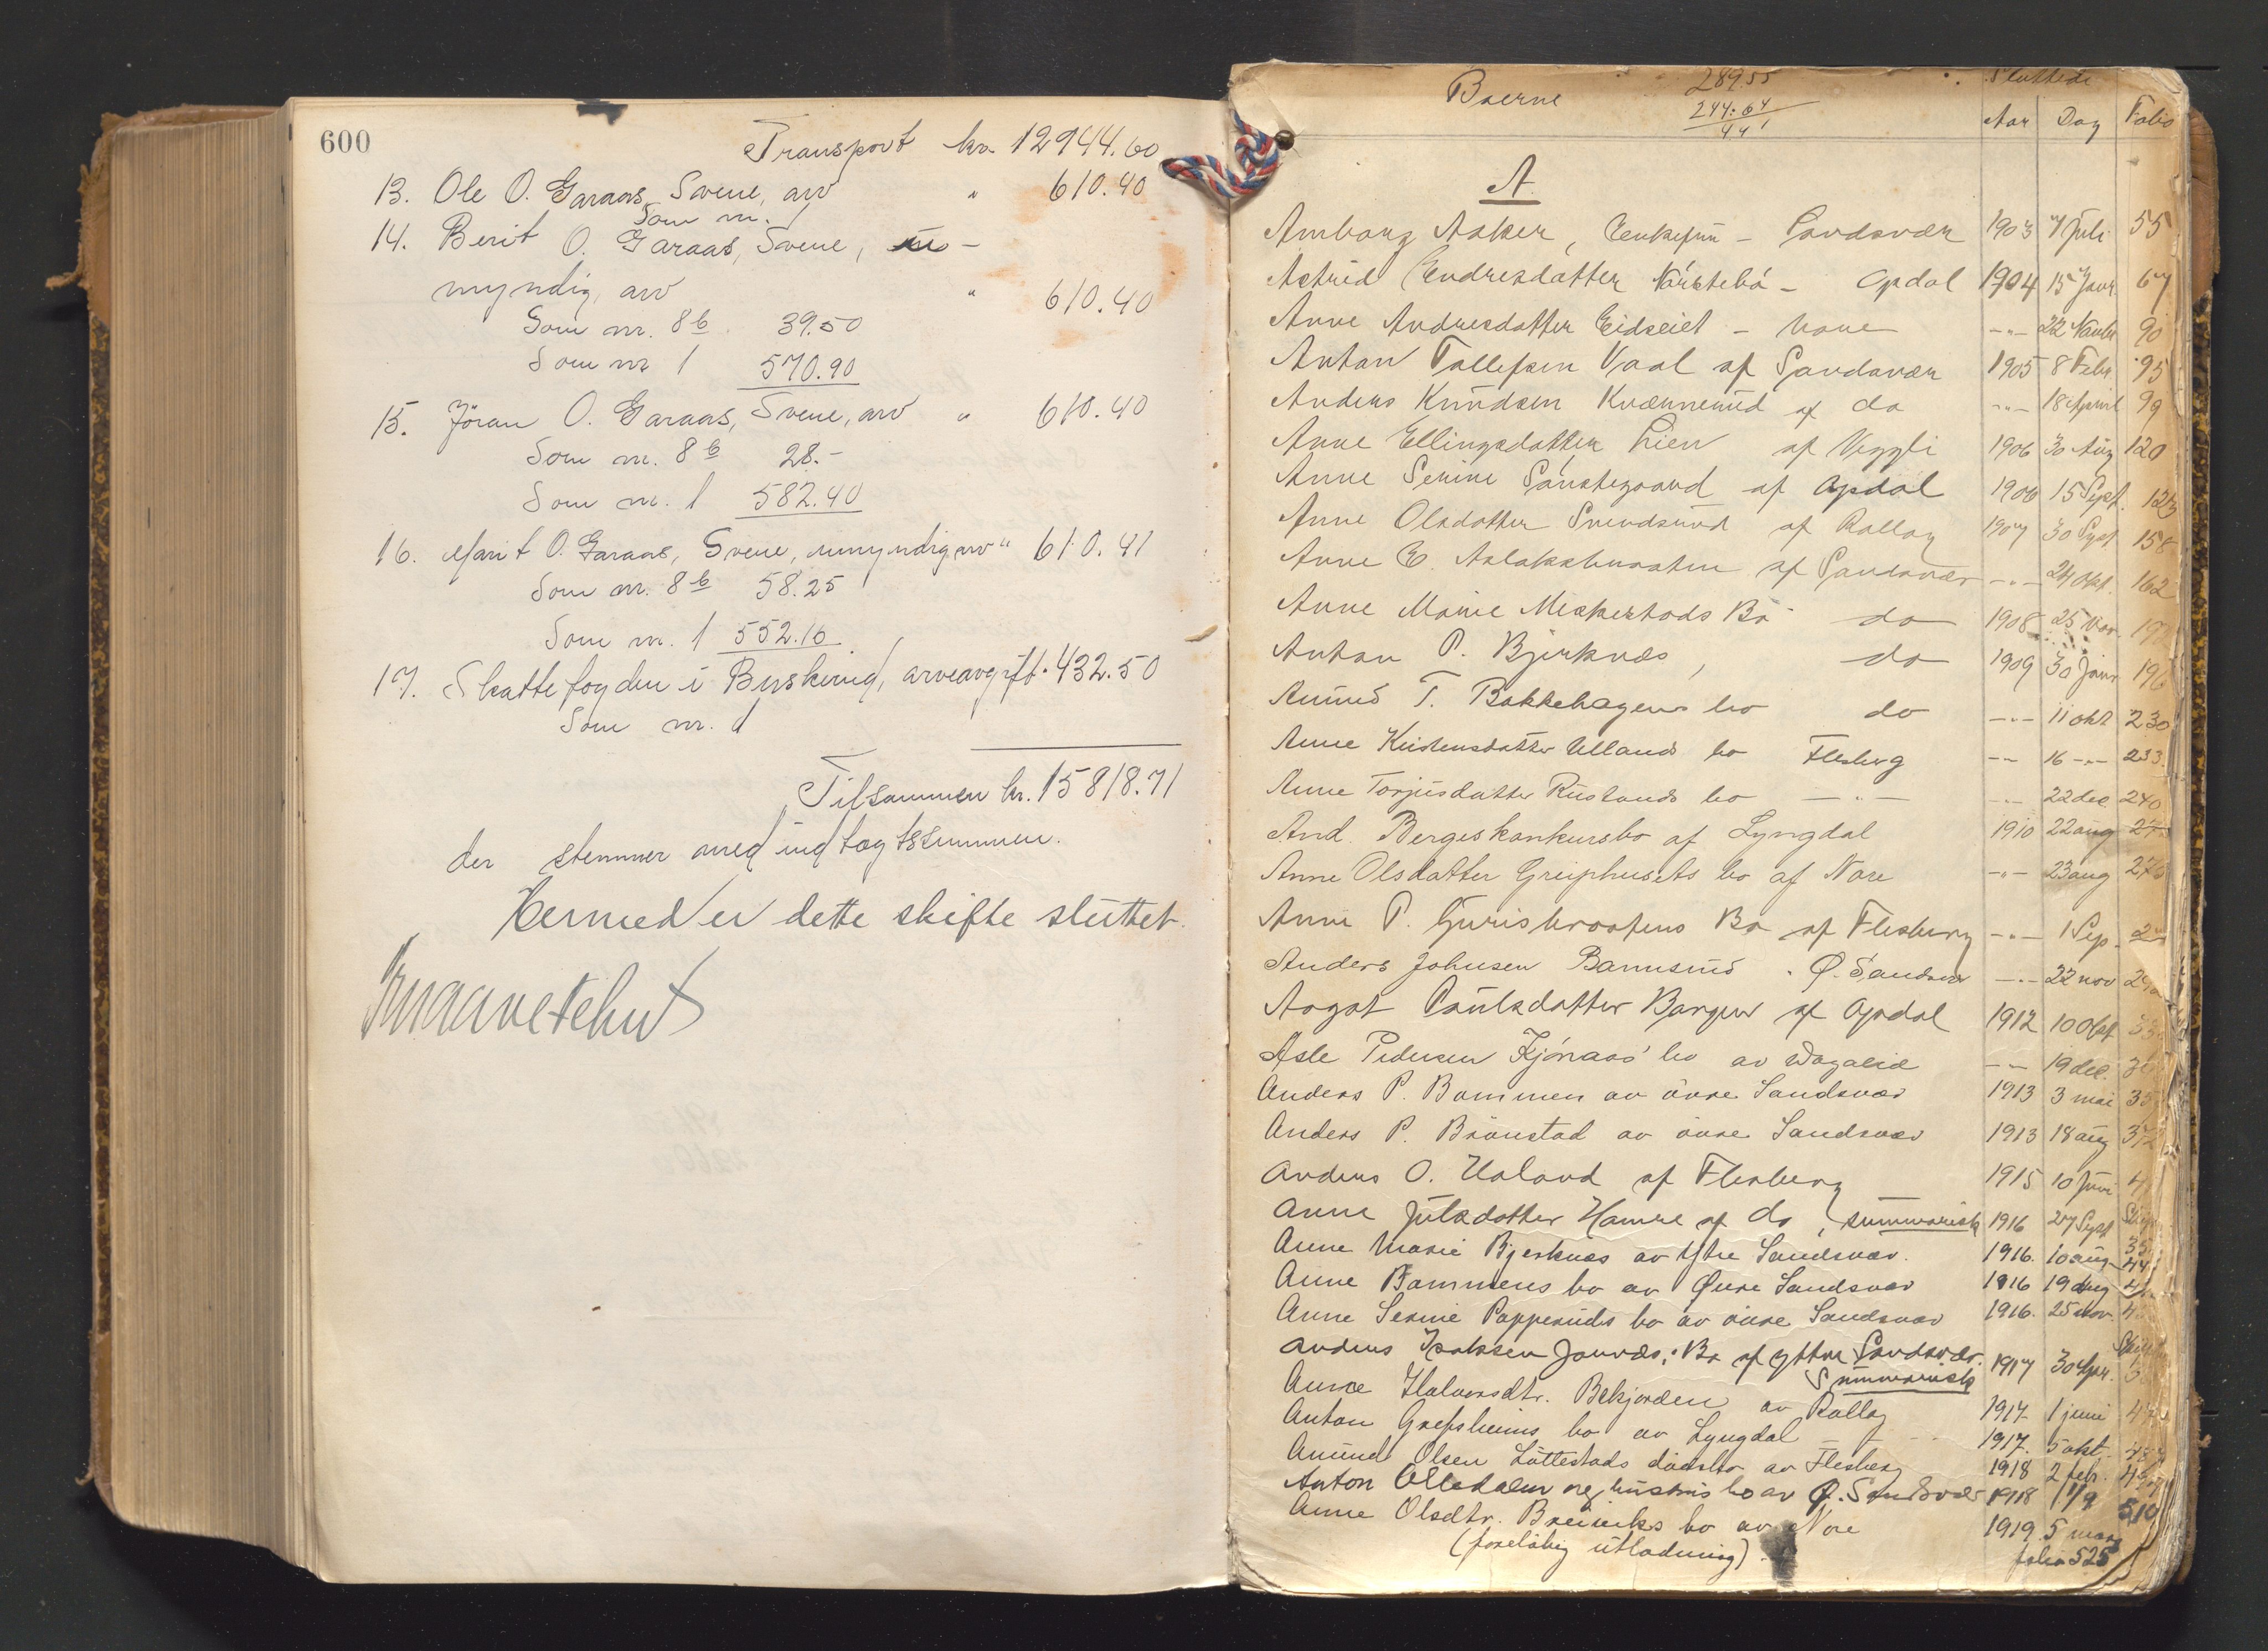 600
Transport kr. 12944.60
13. Ole O. Garaas, Svene, arv " 610.40
Som nr. 1
14. Berit O. Garaas, Svene, u-
myndig, arv " 610.40
Som nr. 8 b 39.50
Som nr 1 570.90
15. Jöran O. Garaas, Svene, arv " 610.40
Som nr. 8 b 28.-
Som nr. 1 582.40
16. Marit O. Garaas, Svene, umyndig, arv " 610.41
Som nr. 8 b 58.25
Som nr. 1 552.16
17. Skattefogden i Buskerud, arveavgift 432.50
Som nr. 1
Tilsammen kr. 15818.71
der stemmer med indtægtssummen.
Hermed er dette skifte sluttet.
Boerne 289.55 Sluttede
244.64
441
Aar Dag Folio
A.
Anborg Aaker, Enkefru - Sandsvær 1903 4 Juli 55
Astrid Endresdatter Nörstebö - Opdal 1904 15 Janr. 67
Anne Andresdatter Eidseiet - Nore -"- 22 Novbr 90
Anton Tollefsen Vaal af Sandsvær 1905 8 Febr. 95
Anders Knudsen Kvænnerud af do -"- 18 April 99
Anne Ellingsdatter Lien af Veggli 1906 30 Aug 120
Anne Serine Sönstegaard af Opdal 1906 15 Sept. 123
Anne Olsdatter Svendsrud af Rollag 1907 30 Sept 158
Anne E. Aslaksbraaten af Sandsvær -"- 24 Okt. 162
Anne Marie Meskestads Bo do 1908 25 Nov.
Anton P. Bjerknæs, do 1909 30 Janr 196
Amund T. Bakkehagens bo do -"- 11 okt 230
Anne Kristensdatter Ullands bo Flesberg -"- 16 -"- 233.
Anne Torjusdatter Ruslands bo -"- -"- 22 dec 240
And. Berges konkursbo af Lyngdal 1910 22 aug
Anne Olsdatter Greiphusets bo af Nore -"- 23 aug 276
Anne P. Gurisbraatens Bo af Flesberg -"- 1 Sep.
Anders Johnsen Bamrud Ø. Sandsvær -"- 22 nov
Aagot Paulsdatter Bergen af Opdal 1912 10 Okt
Asle Pedersen Kjönaas' bo av -"- 19 dec.
Anders P. Bammen av övre Sandsvær 1913 3 mai
Anders P. Brönstad av övre Sandsvær 1913 18 aug 372
Anders O. Haland af Flesberg 1915 10 Juni
Anne Julsdatter Hamre af do, summarisk 1916 27 Sept
Anne Marie Bjerknæs av Ytre Sandsvær. 1916. 10 aug
Anne Bammens bo av Øvre Sandsvær 1916 19 aug
Anne Serine Papperuds bo av övre Sandsvær 1916. 25 nov.
Anders Isaksen Jonræs, Bo af yttre Sandsvær. 1917 30 Apr.
Summarisk
Anne Halvorsdtr. Bekjorden av Rollag 1917 1 juni
Anton Grefsheims bo av Lyngdal 1917. 5 okt.
Amund Olsen Lüttestads dödsbo av Flesberg 1918 2 febr.
Anton Olledalen og hustrus bo av Ø. Sandsvær 1918 1/9 510
Anne Olsdtr. Breiviks bo av Nore 1919 5 mars
(foreløbig utlodning) folio 525